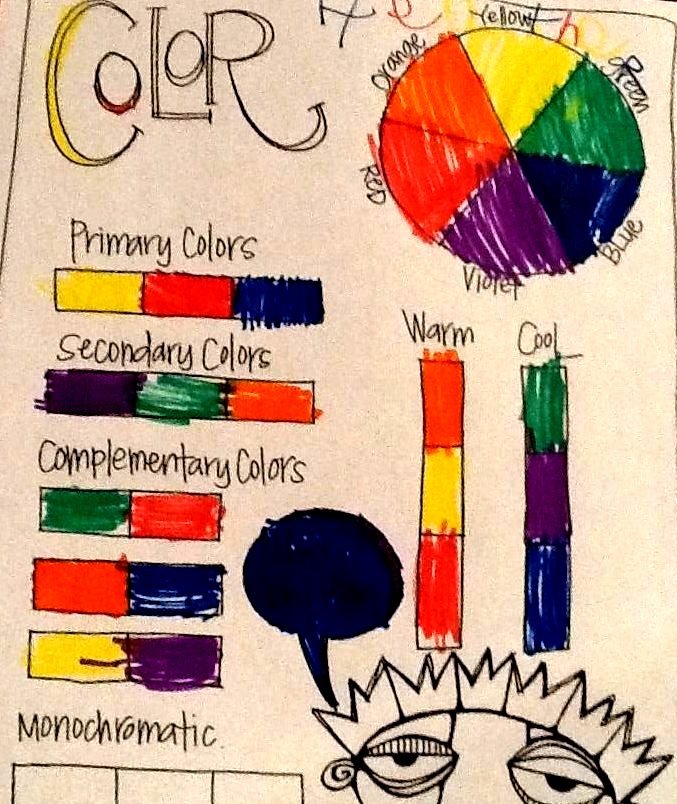 COLOR
Yellow
Orange
Green
RED
BLUE
Violet
Primary Colors
Warm
Cool
Secondary Colors
Complementary Colors
Monochromatic